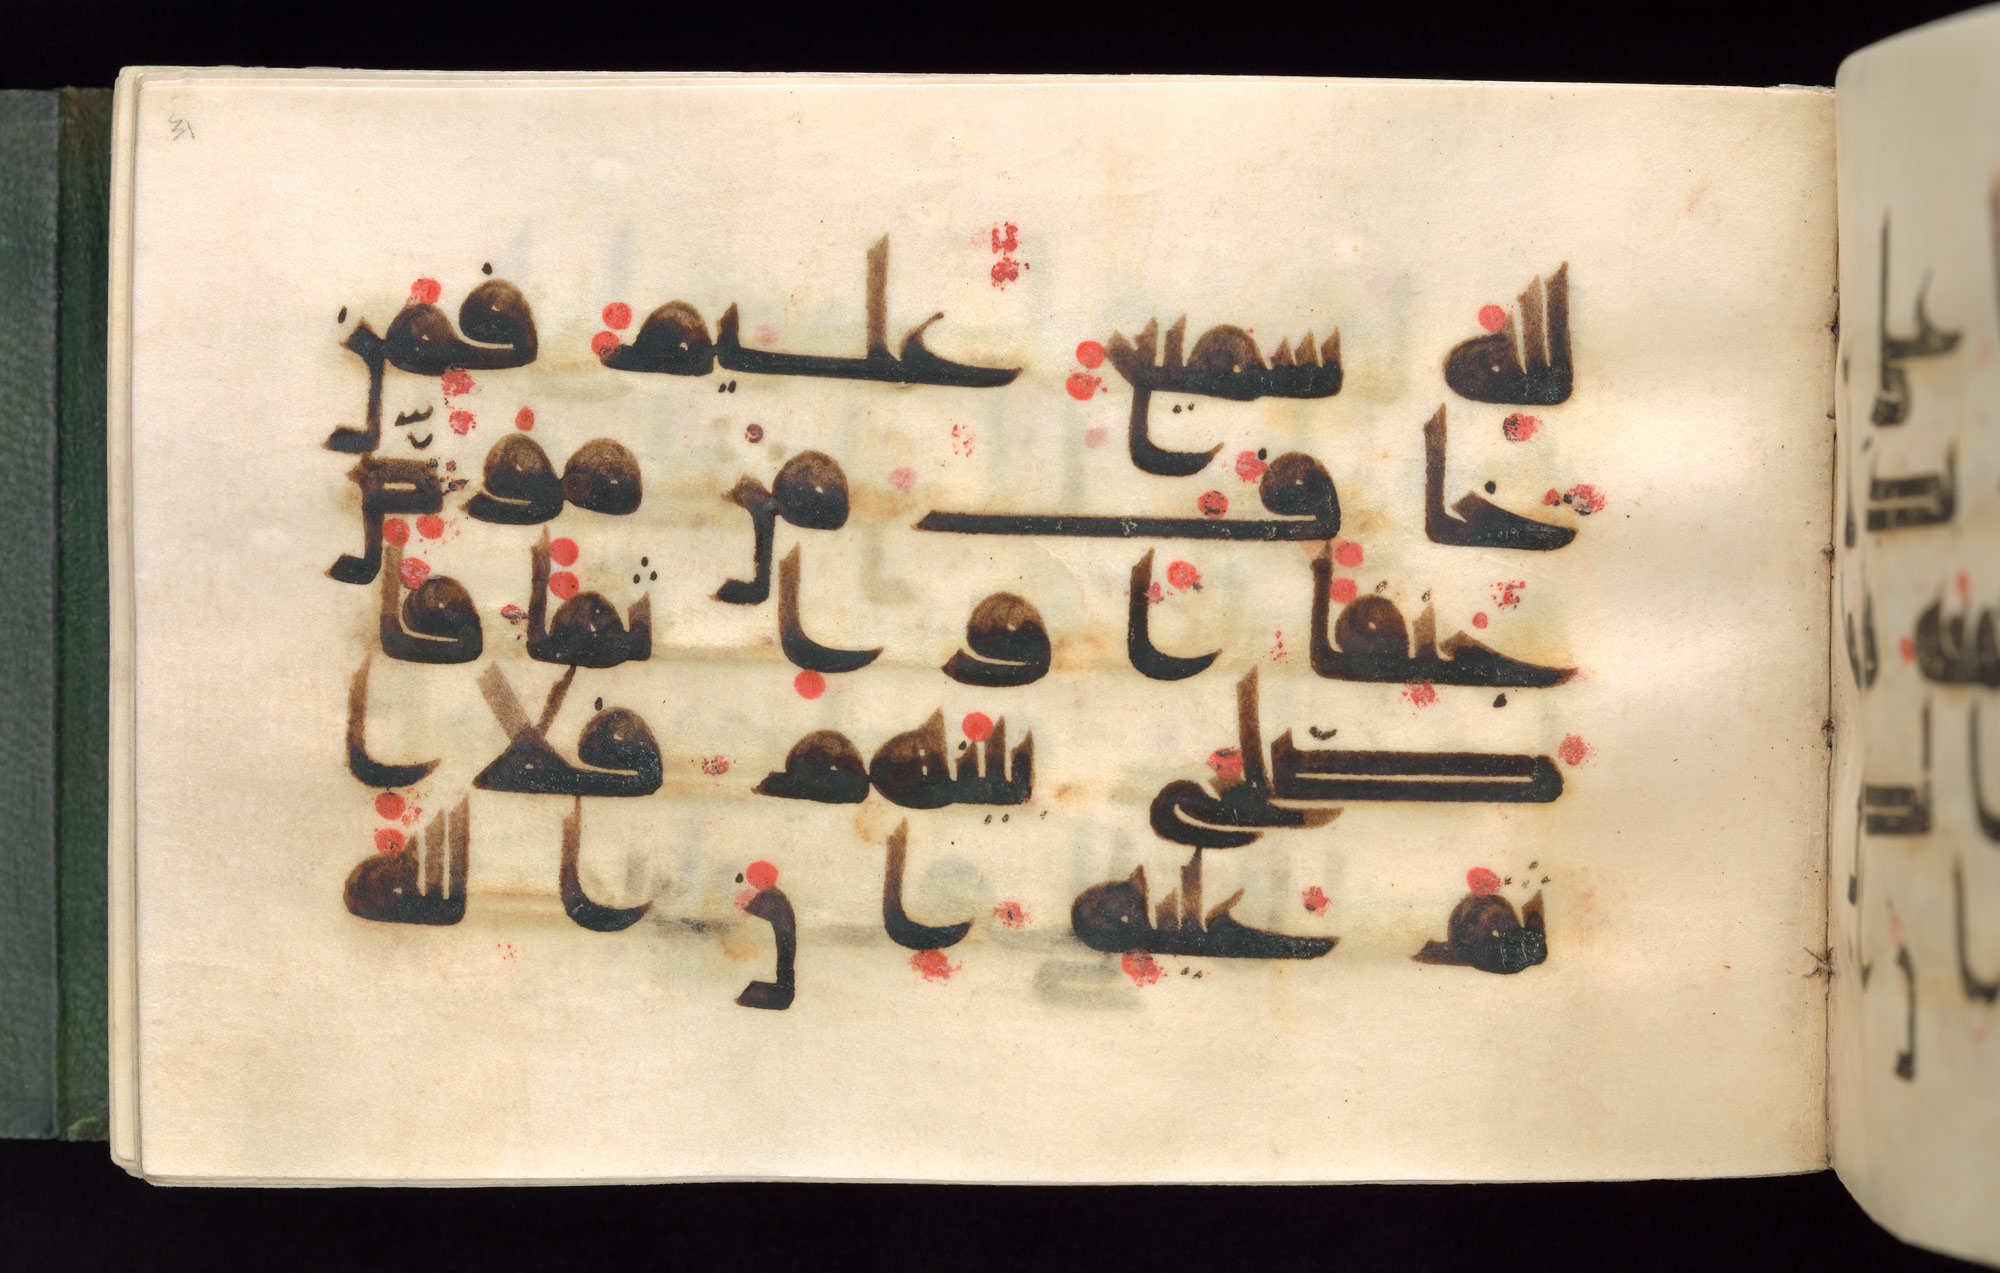 31
الله سميع عليم فمن
خاف من موص
جنفا او اثما فا
صلح بينهم فلا ا
ثم عليه ان الله